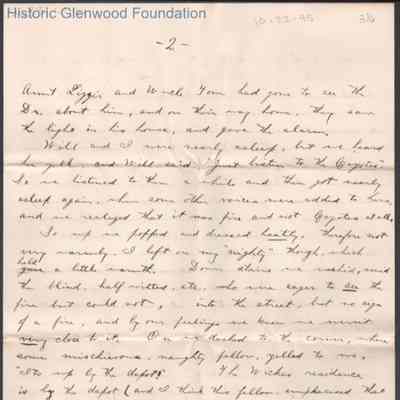 Historic Glenwood Foundation
10-22-95 38
-2-
Aunt Lizzie and Uncle Tom had gone to see the
Dr. about him, and on their way home, they saw
the light in his house, and gave the alarm.
Will and I were nearly asleep, but we heard
the yell, and Will said "Just listen to the Coyotes"
So we listened to them a while and then got nearly
asleep again, when some other voices were added to
and we realized that it was fire and not Coyotes at all.
So up we popped and dressed hastily. Therefore not
very warmly. I left on my "nighty" though, which
held
gave a little warmth. Down stairs we rushed, and
the blind, half witted, etc. who were eager to see the
fire but could not, into the street, but no sign
of a fire, and by our feelings we knew we weren't
very close to it. On we dashed to the corner, where
some mischievous, naughty fellow, yelled to us,
"Its up by the depot". The Wicks residence
is by the depot (and I think this fellow emphasized that